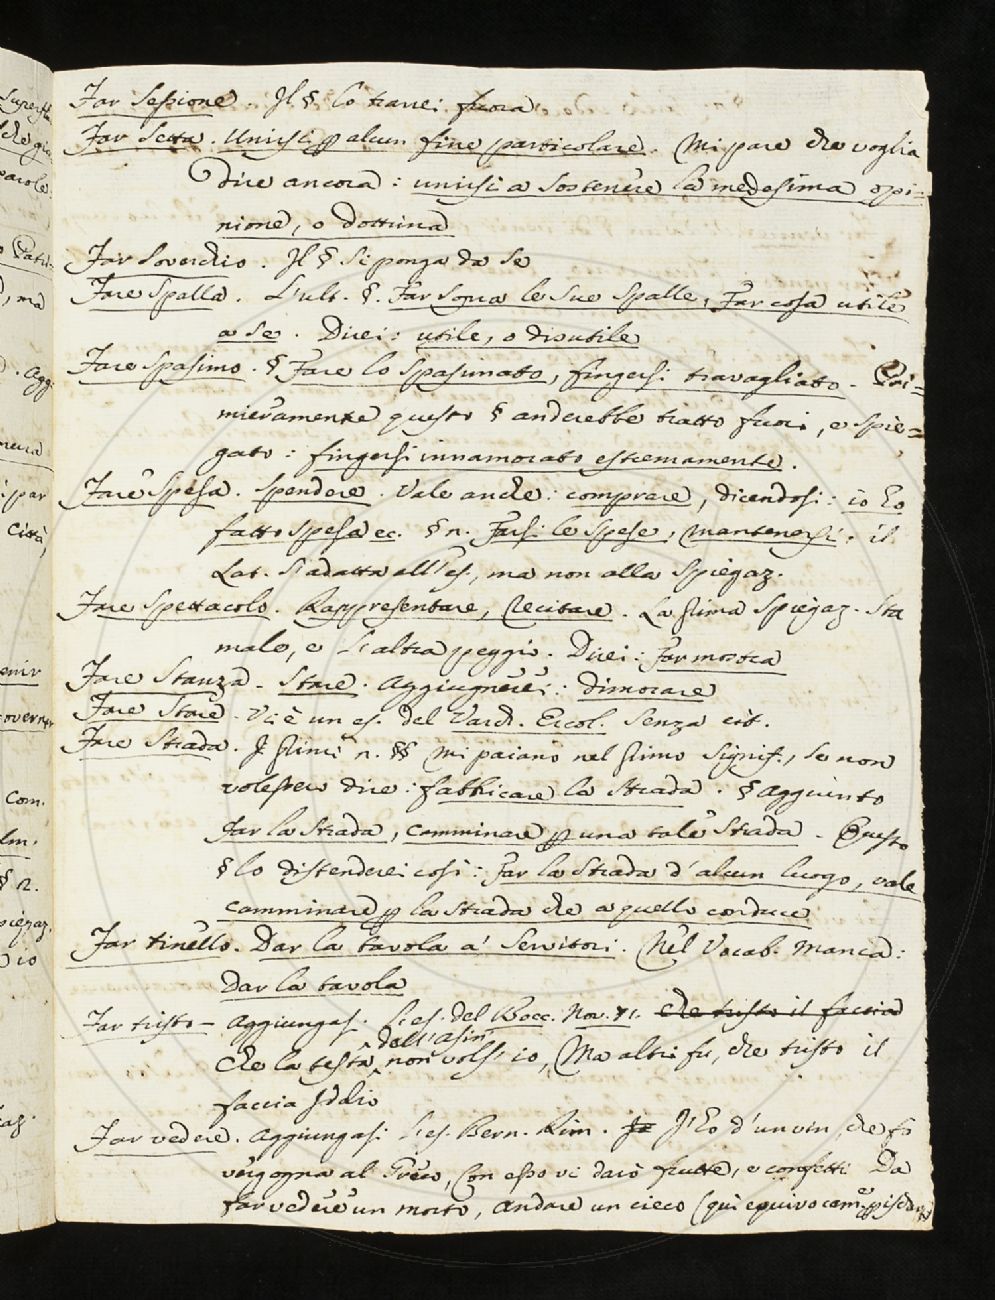 Far Sessione. Il § lo trarrei fuora
Far Setta. Unirsi p alcun fine particolare. Mi pare che voglia
dire ancora: unirsi a sostenere la medesima opi=
nione, o dottrina
Far Soverchio. Il § si ponga da se
Fare Spalla. L'ult. §. Far sopra le sue spalle, Far cosa utile
a se. Direi: utile, o disutile
Fare Spasimo. § Fare lo spasimato, fingersi travagliato. Pri=
mieramente questo § anderebbe tratto fuori, e spie=
gato: fingersi innamorato estremamente.
Fare Spesa. Spendere. Vale anche: comprare, dicendosi: io ho
fatto spesa ec. § n. Farsi le spese, mantenersi: il
Lat. s'adatta all'es., ma non alla spiegaz.
Fare Spettacolo. Rappresentare, recitare. La prima spiegaz. sta
male, e l'altra peggio. Direi: far mostra
Fare Stanza. Stare. Aggiugnerei: dimorare
Fare Stare. Vi è un es. del Varch. Ercol. senza cit.
Fare Strada. I primi n. §§ mi paiano nel primo signif., se non
volesser dire: fabbricare la strada. § aggiunto
Far la strada, camminare p una tale strada. Questo
§ lo distenderei così: Far la strada d'alcun luogo, vale
camminare p la strada che a quello conduce
Far tinello. Dar la tavola a' servitori. Nel Vocab. manca:
Dar la tavola
Far tristo. Aggiungasi l'es. del Bocc. Nov. 71. che tristo il faccia
dell'asin
Che la testa non vols' io, Ma altri fu, che tristo il
faccia Iddio
Far vedere. Aggiungasi l'es. Bern. Rim. I' ho d'un vin, che fa
vergogna al Greco, Con esso vi darò frutte, e confetti Da
far vedere un morto, andare un cieco (qui equivocam.e